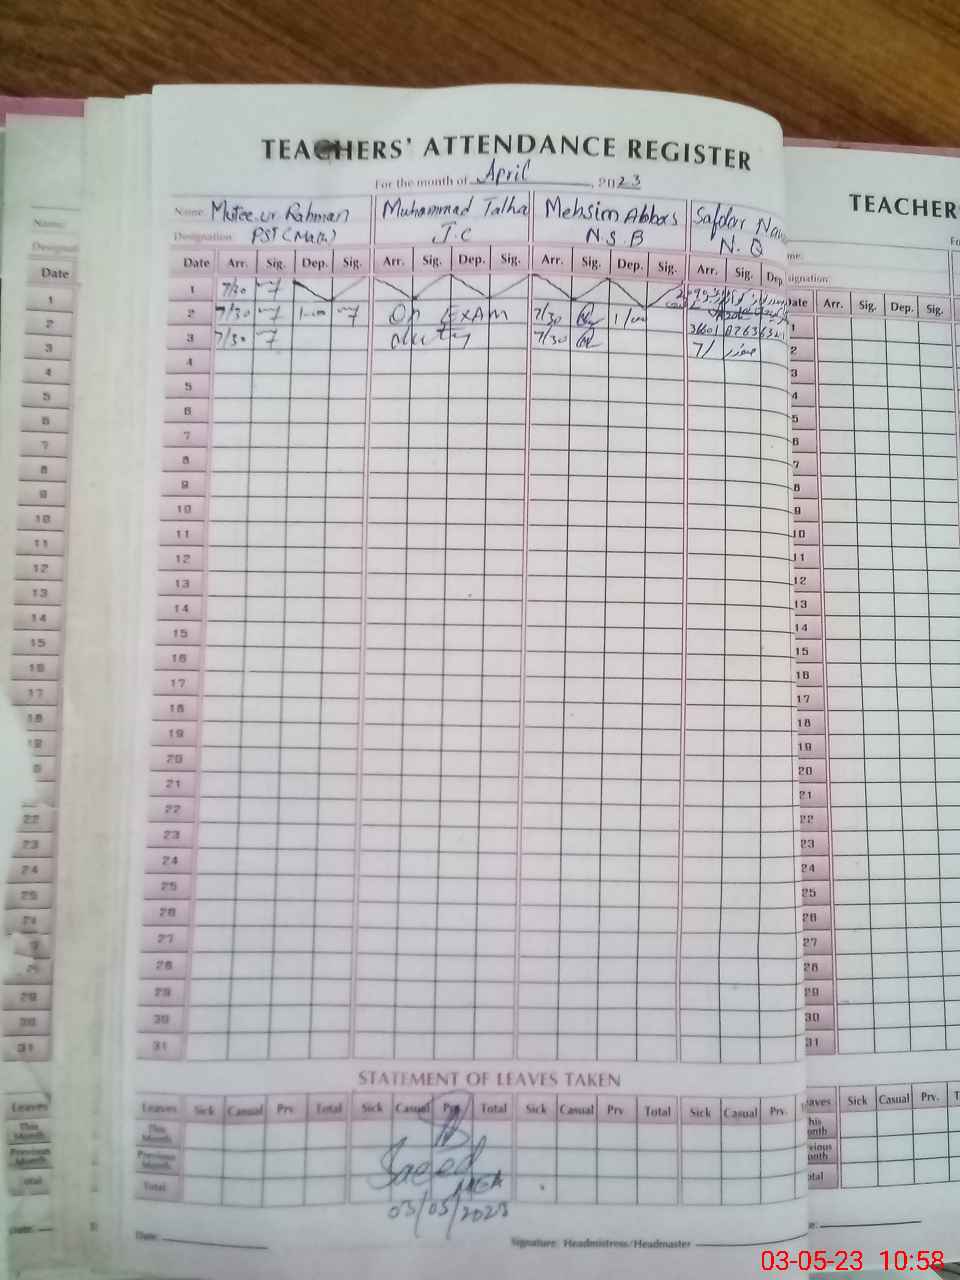 TEACHERS' ATTENDANCE REGISTER
For the month of April, 2023
Name: Mutee ur Rahman Muhammad Talha Mehsim Abbas Safdar
Designation: PST (Math) J.C N.S.B N.Q
Date Arr. Sig. Dep. Sig. Arr. Sig. Dep. Sig. Arr. Sig. Dep. Sig. Arr. Sig. Dep
1 7/30
2 7/30 1-00 On EXAM 7/30 1/00
3 7/30 duty 7/30
4 7/
5
6
7
8
9
10
11
12
13
14
15
16
17
18
19
20
21
22
23
24
25
26
27
28
29
30
31
STATEMENT OF LEAVES TAKEN
Leaves Sick Casual Prv. Total Sick Casual Prv. Total Sick Casual Prv. Total Sick Casual Prv.
This Month
Previous Month
Total
Saeed
MEA
03/05/2023
Date:
Signature: Headmistress/Headmaster
Name:
Date
1
2
3
4
5
6
7
8
9
10
11
12
13
14
15
16
17
18
22
23
24
25
29
30
31
Leaves
This Month
Previous Month
Total
Date:
TEACHER
Date Arr. Sig. Dep. Sig.
1
2
3
4
5
6
7
8
9
10
11
12
13
14
15
16
17
18
19
20
21
22
23
24
25
26
27
28
29
30
31
Sick Casual Prv.
03-05-23 10:58